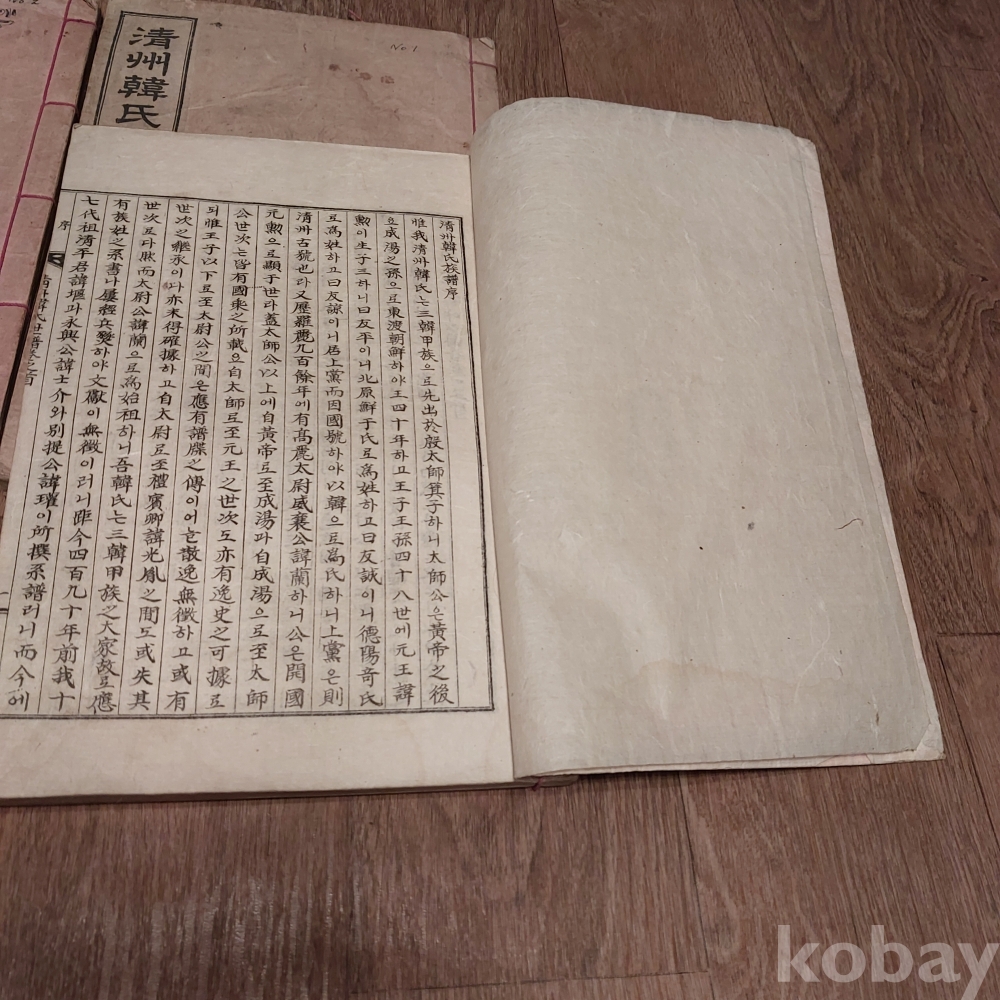 清州韓氏
No 1
清州韓氏族譜序
惟我清州韓氏는三韓甲族으로先出於殷太師箕子하니太師公은黃帝之後
요成湯之孫으로東渡朝鮮하야王四十年하고王子王孫四十八世에元王諱
勳이生子三하니曰友平이니北原鮮于氏로爲姓하고曰友誠이니德陽奇氏
로爲姓하고曰友諒이니居上黨而因國號하야以韓으로爲氏하니上黨은則
清州古號也라又歷羅麗九百餘年에有高麗太尉威襄公諱蘭하니公은開國
元勳으로顯于世라蓋太師公以上에自黃帝로至成湯과自成湯으로至太師
公世次는皆有國乘之所載요自太師로至元王之世次도亦有逸史之可據로
되惟王子以下로至太尉公之間은應有譜牒之傳이어늘散逸無徵하고或有
世次之繼承이나亦未得確據하고自太尉로至禮賓卿諱光胤之間도或失其
世次로다然而太尉公諱蘭으로爲始祖하니吾韓氏는三韓甲族之大家故로應
有族姓之系書나屢經兵燹하야文獻이無徵이러니距今四百九十年前我十
七代祖清平君諱堰과永興公諱士介와別提公諱瓘이所撰系譜러니而今에
序
清州韓氏世譜卷之首
一
kobay